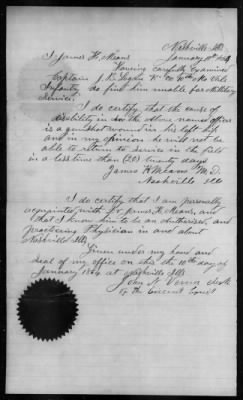 Nashville Ills
January 10th 1864
I James H. Means
Having carefully Examined
Captain J. B. Logan K. Co 10th Mo Vols
Infantry do find him unable for Military
Service.
I do certify, that the cause of
disability in the above named officer
is a gunshot wound in his left hip
and in my opinion he will not be
able to return to service in the field
in a less time than (20) twenty days
James H Means M.D.
Nashville Ills
I do certify that I am personally
acquainted with Dr James H. Means, and
that I know him to be an Authorized, and
practicing Physician in and about
Nashville Ills
Given under my hand and
seal of my office on this the 10th day of
January 1864 at Nashville Ills.
John N. Vernor Clerk
of the Circuit Court